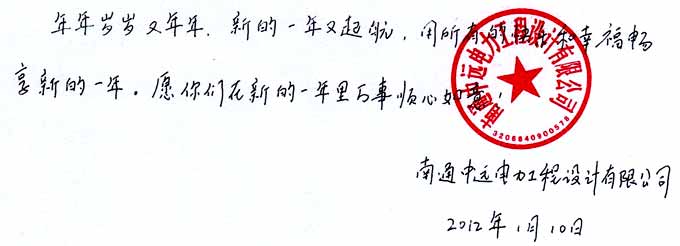 年年岁岁又年年，新的一年又起航，用所有的快乐和幸福畅
享新的一年。愿你们在新的一年里万事顺心如意！
南通中远电力工程设计有限公司
3206840900578
南通中远电力工程设计有限公司
2012年1月10日